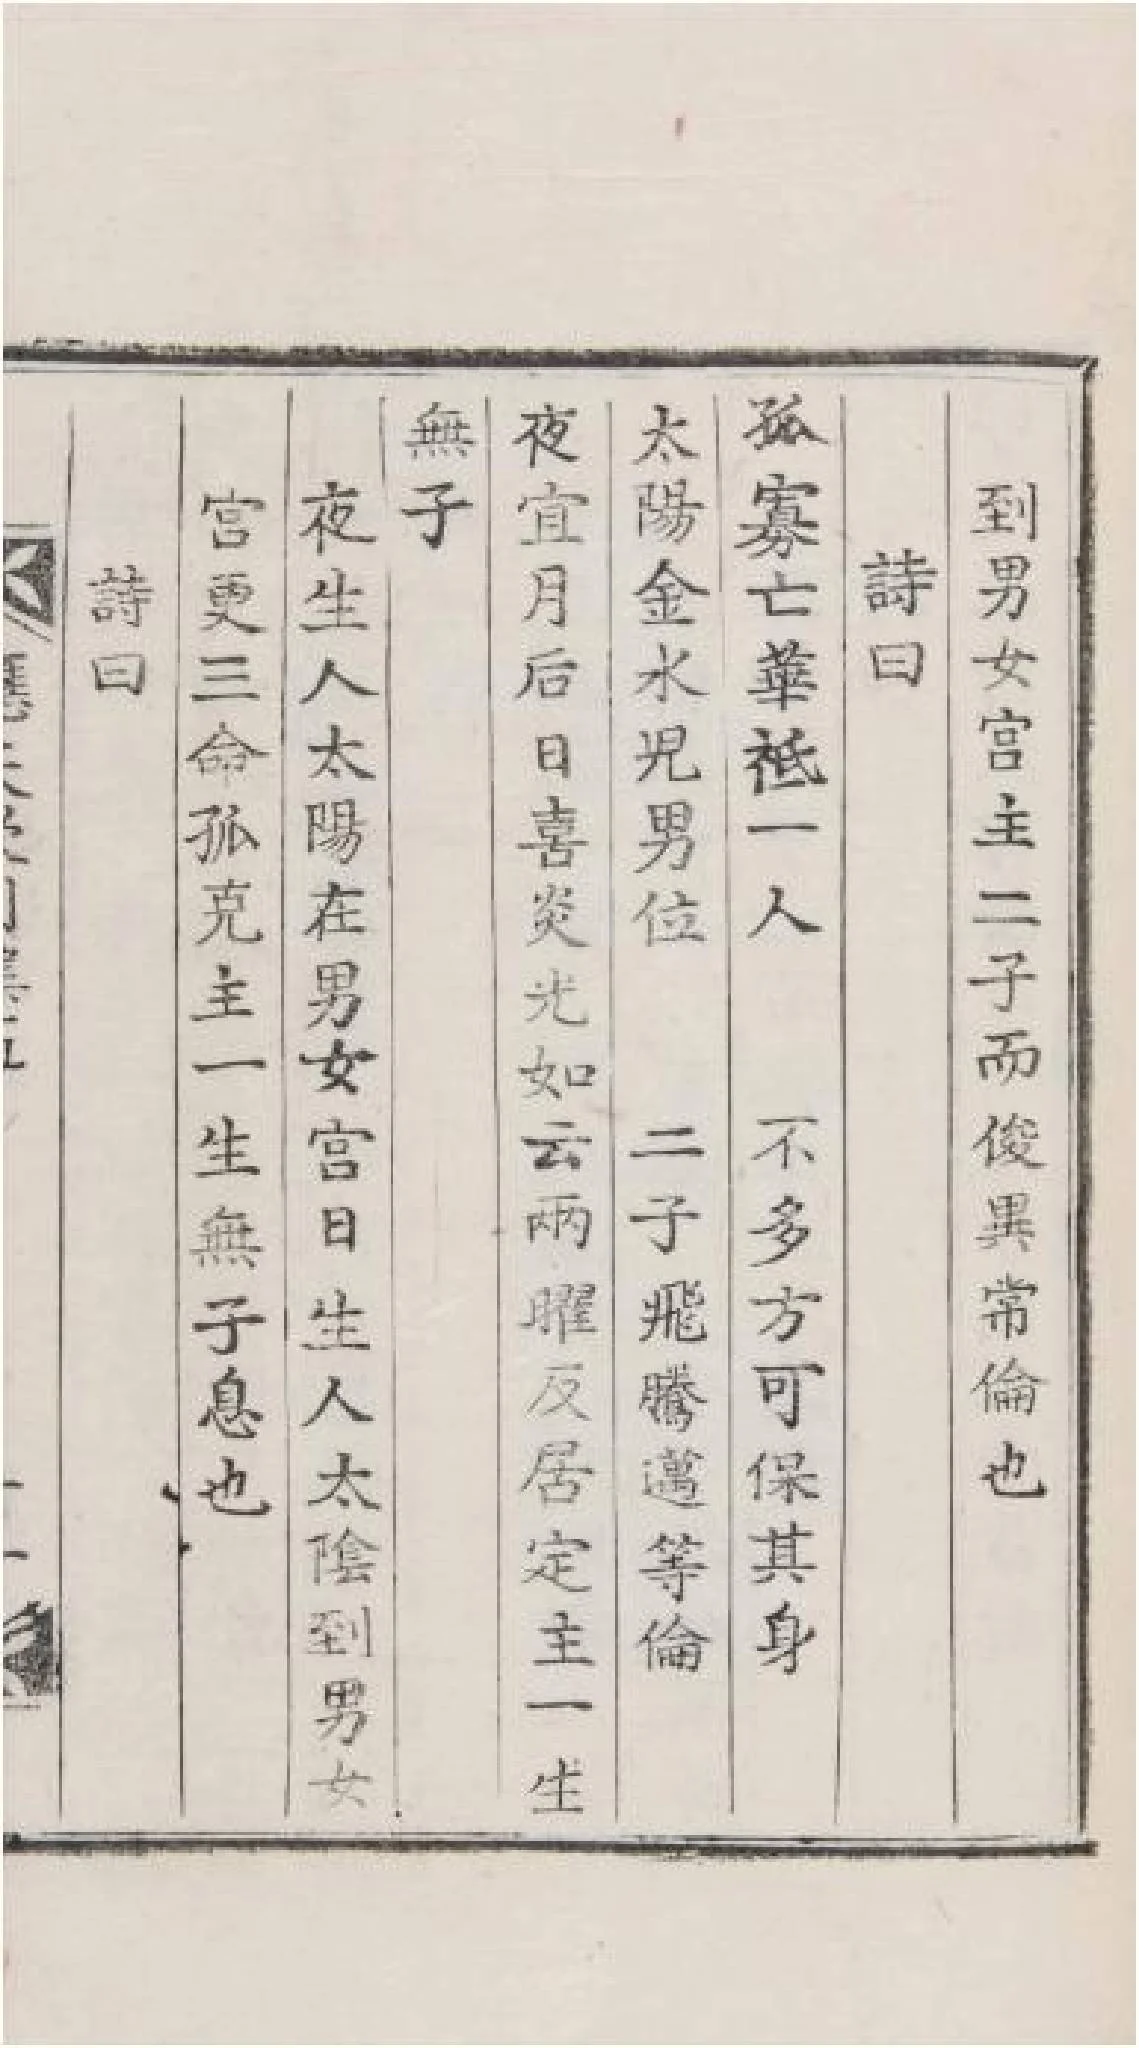 到男女宮主二子而俊異常倫也
詩曰
孤寡亡華祗一人　不多方可保其身
太陽金水児男位　二子飛騰邁等倫
夜宜月后日喜炎光如云兩曜反居定主一生
無子
夜生人太陽在男女宮日生人太陰到男女
宮更三命孤克主一生無子息也
詩曰